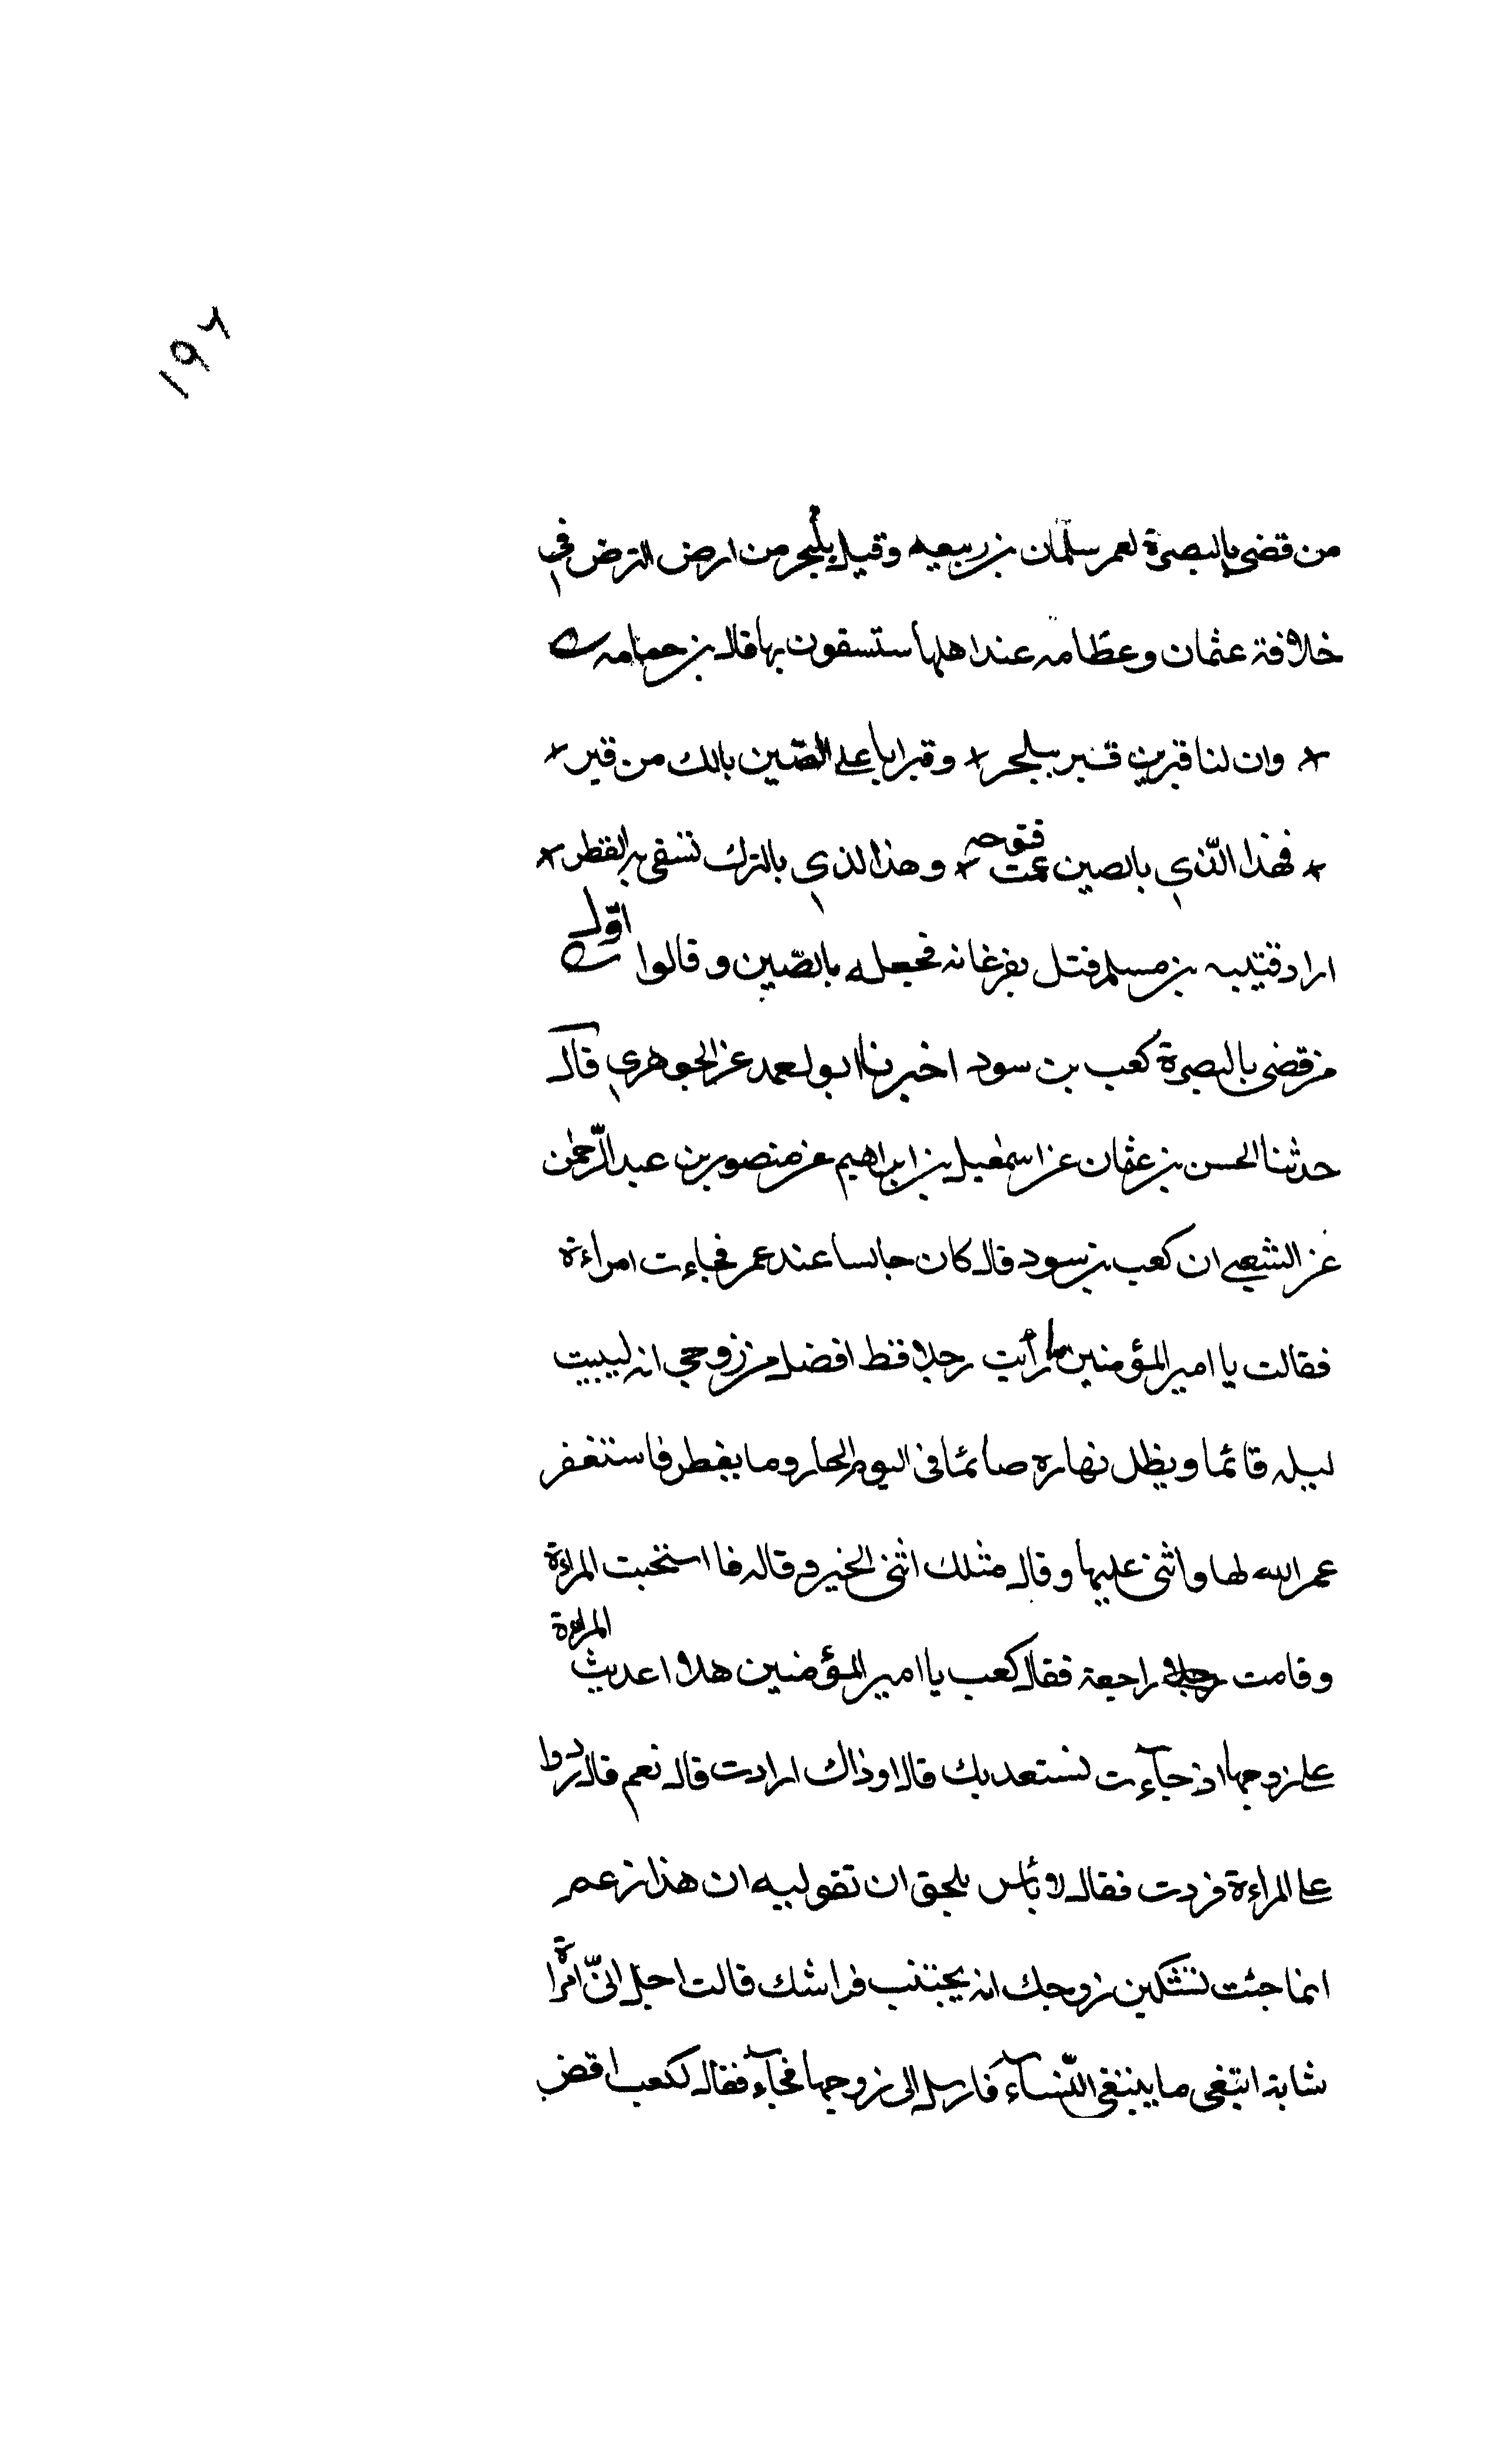 ١٩٢
من قضى بالبصرة لعمر سلمان بن ربيعه وقيل بلنجر من ارض الترض في
خلافة عثمان وعظامه عند اهلها ستسقون بها قال بن حمامه
وان لنا قبرين قبر ببلنجر وقبرا باعلى الصّين يالك من قبر
فهذا الّذي بالصين عمت فتوحه وهذا الذي بالترك تسقى به القطر
اراد قتيبه بن مسلم قتل بفرغانه فجعله بالصّين وقالوا اوّل
من قضى بالبصرة كعب بن سود اخبرنا ابو احمد عن الجوهري قال
حدثنا الحسن بن عثمان عن اسمعيل بن ابراهيم عن منصور بن عبد الرّحمن
عن الشعبي ان كعب بن سود قال كان جالسا عند عمر فجاءت امراءة
فقالت يا امير المؤمنين ما رأيت رجلا قط افضل من زوجي انه ليبيت
ليله قائما ويظل نهاره صائما في اليوم الحار وما يفطر فاستغفر
عمر الله لها وأثنى عليها وقال مثلك اثنى الخير وقاله فا استحيت المراءة
وقامت راجعة فقال كعب يا امير المؤمنين هلا اعديت المراءة
على زوجها اذ جآءت تستعديك قال اوذاك ارادت قال نعم قال ردوا
على المراءة فردت فقال لا بأس بالحق ان تقوليه ان هذا زعم
انما جئت تشتكين زوجك انه يجتنب فراشك قالت اجل انّي امرأة
شابة ابتغي ما يبتغي النّسآء فارسل الى زوجها فجآء فقال لكعب اقض